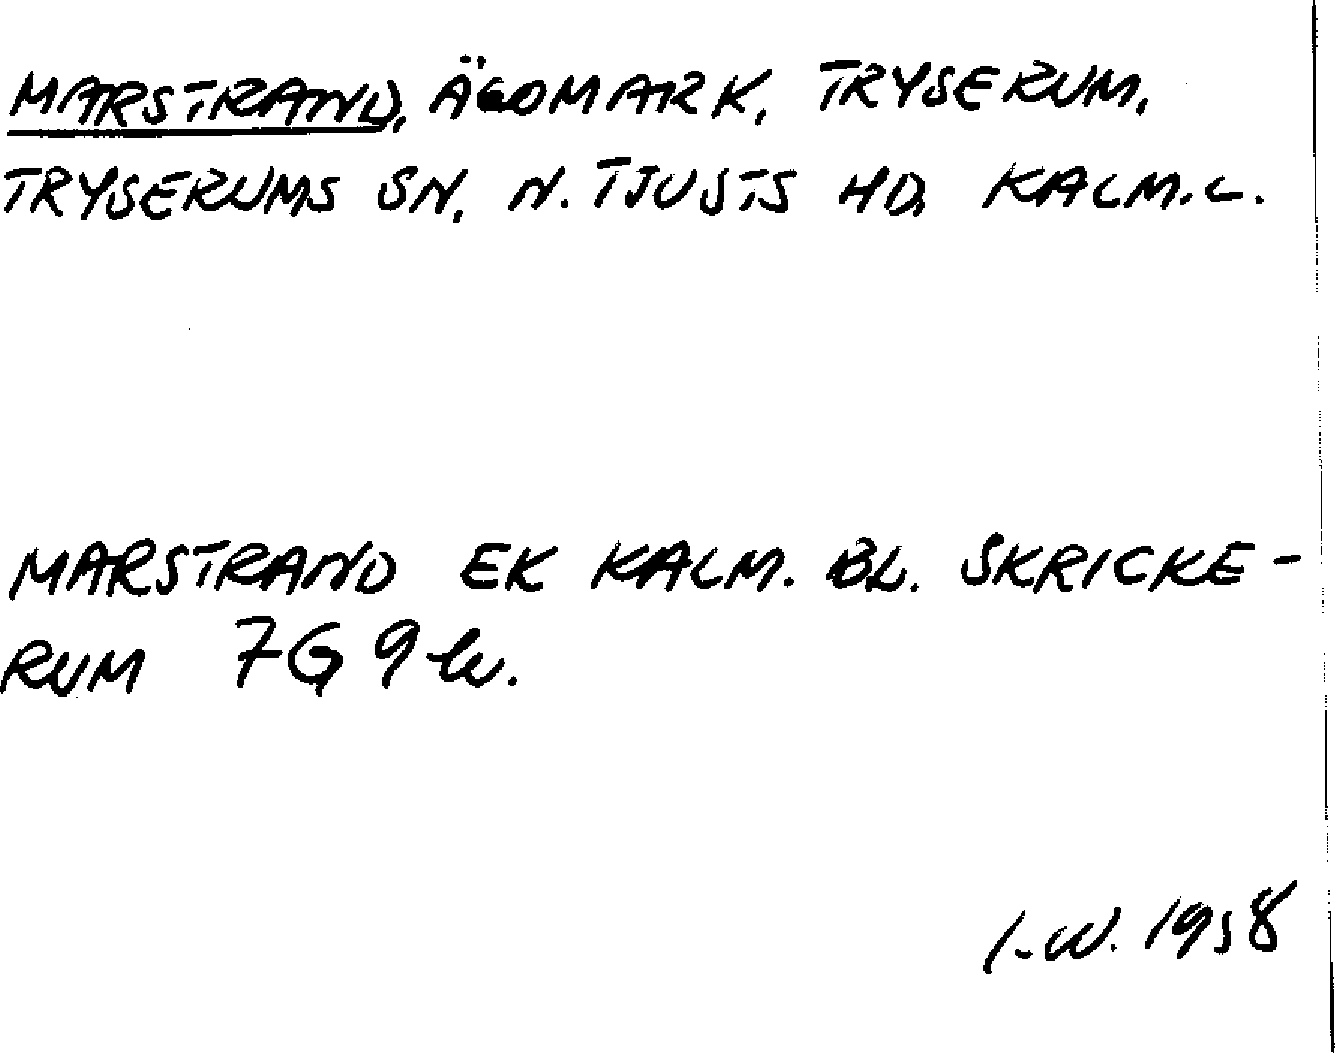 MARSTRAND, ÄGOMARK, TRYSERUM,
TRYSERUMS SN, N. TJUSTS HD, KALM.L.
MARSTRAND EK KALM. BL. SKRICKE-
RUM 7G 9h.
I.W. 1958